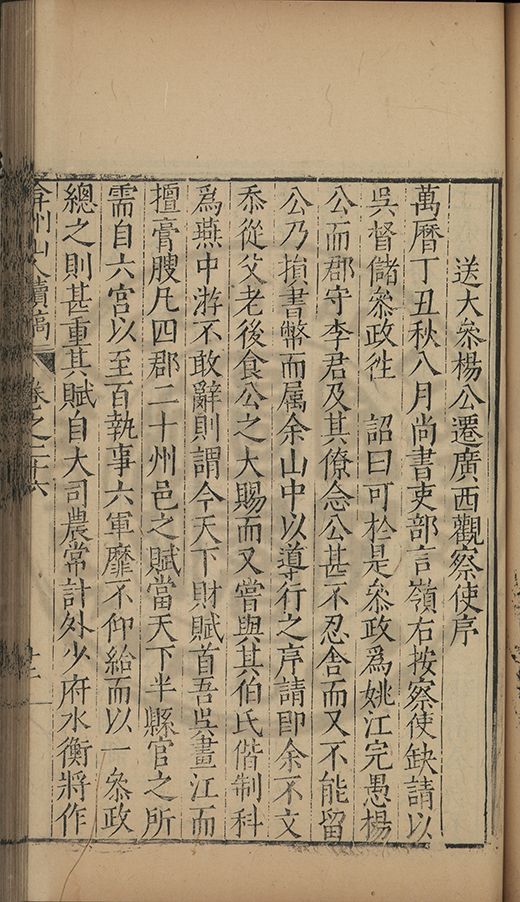 送大叅楊公遷廣西觀察使序
萬曆丁丑秋八月尚書吏部言嶺右按察使缺請以
吳督儲叅政徃　詔曰可扵是叅政爲姚江完愚楊
公而郡守李君及其僚念公甚不忍舍而又不能留
公乃損書幣而属余山中以導行之序請卽余不文
忝從父老後食公之大賜而又嘗與其伯氏偕制科
爲燕中游不敢辭則謂今天下財賦首吾吳畫江而
擅膏腴凡四郡二十州邑之賦當天下半縣官之所
需自六宮以至百執事六軍靡不仰給而以一叅政
總之則甚重其賦自大司農常計外少府水衡將作
弇州山人續稿　卷之二十六　十二